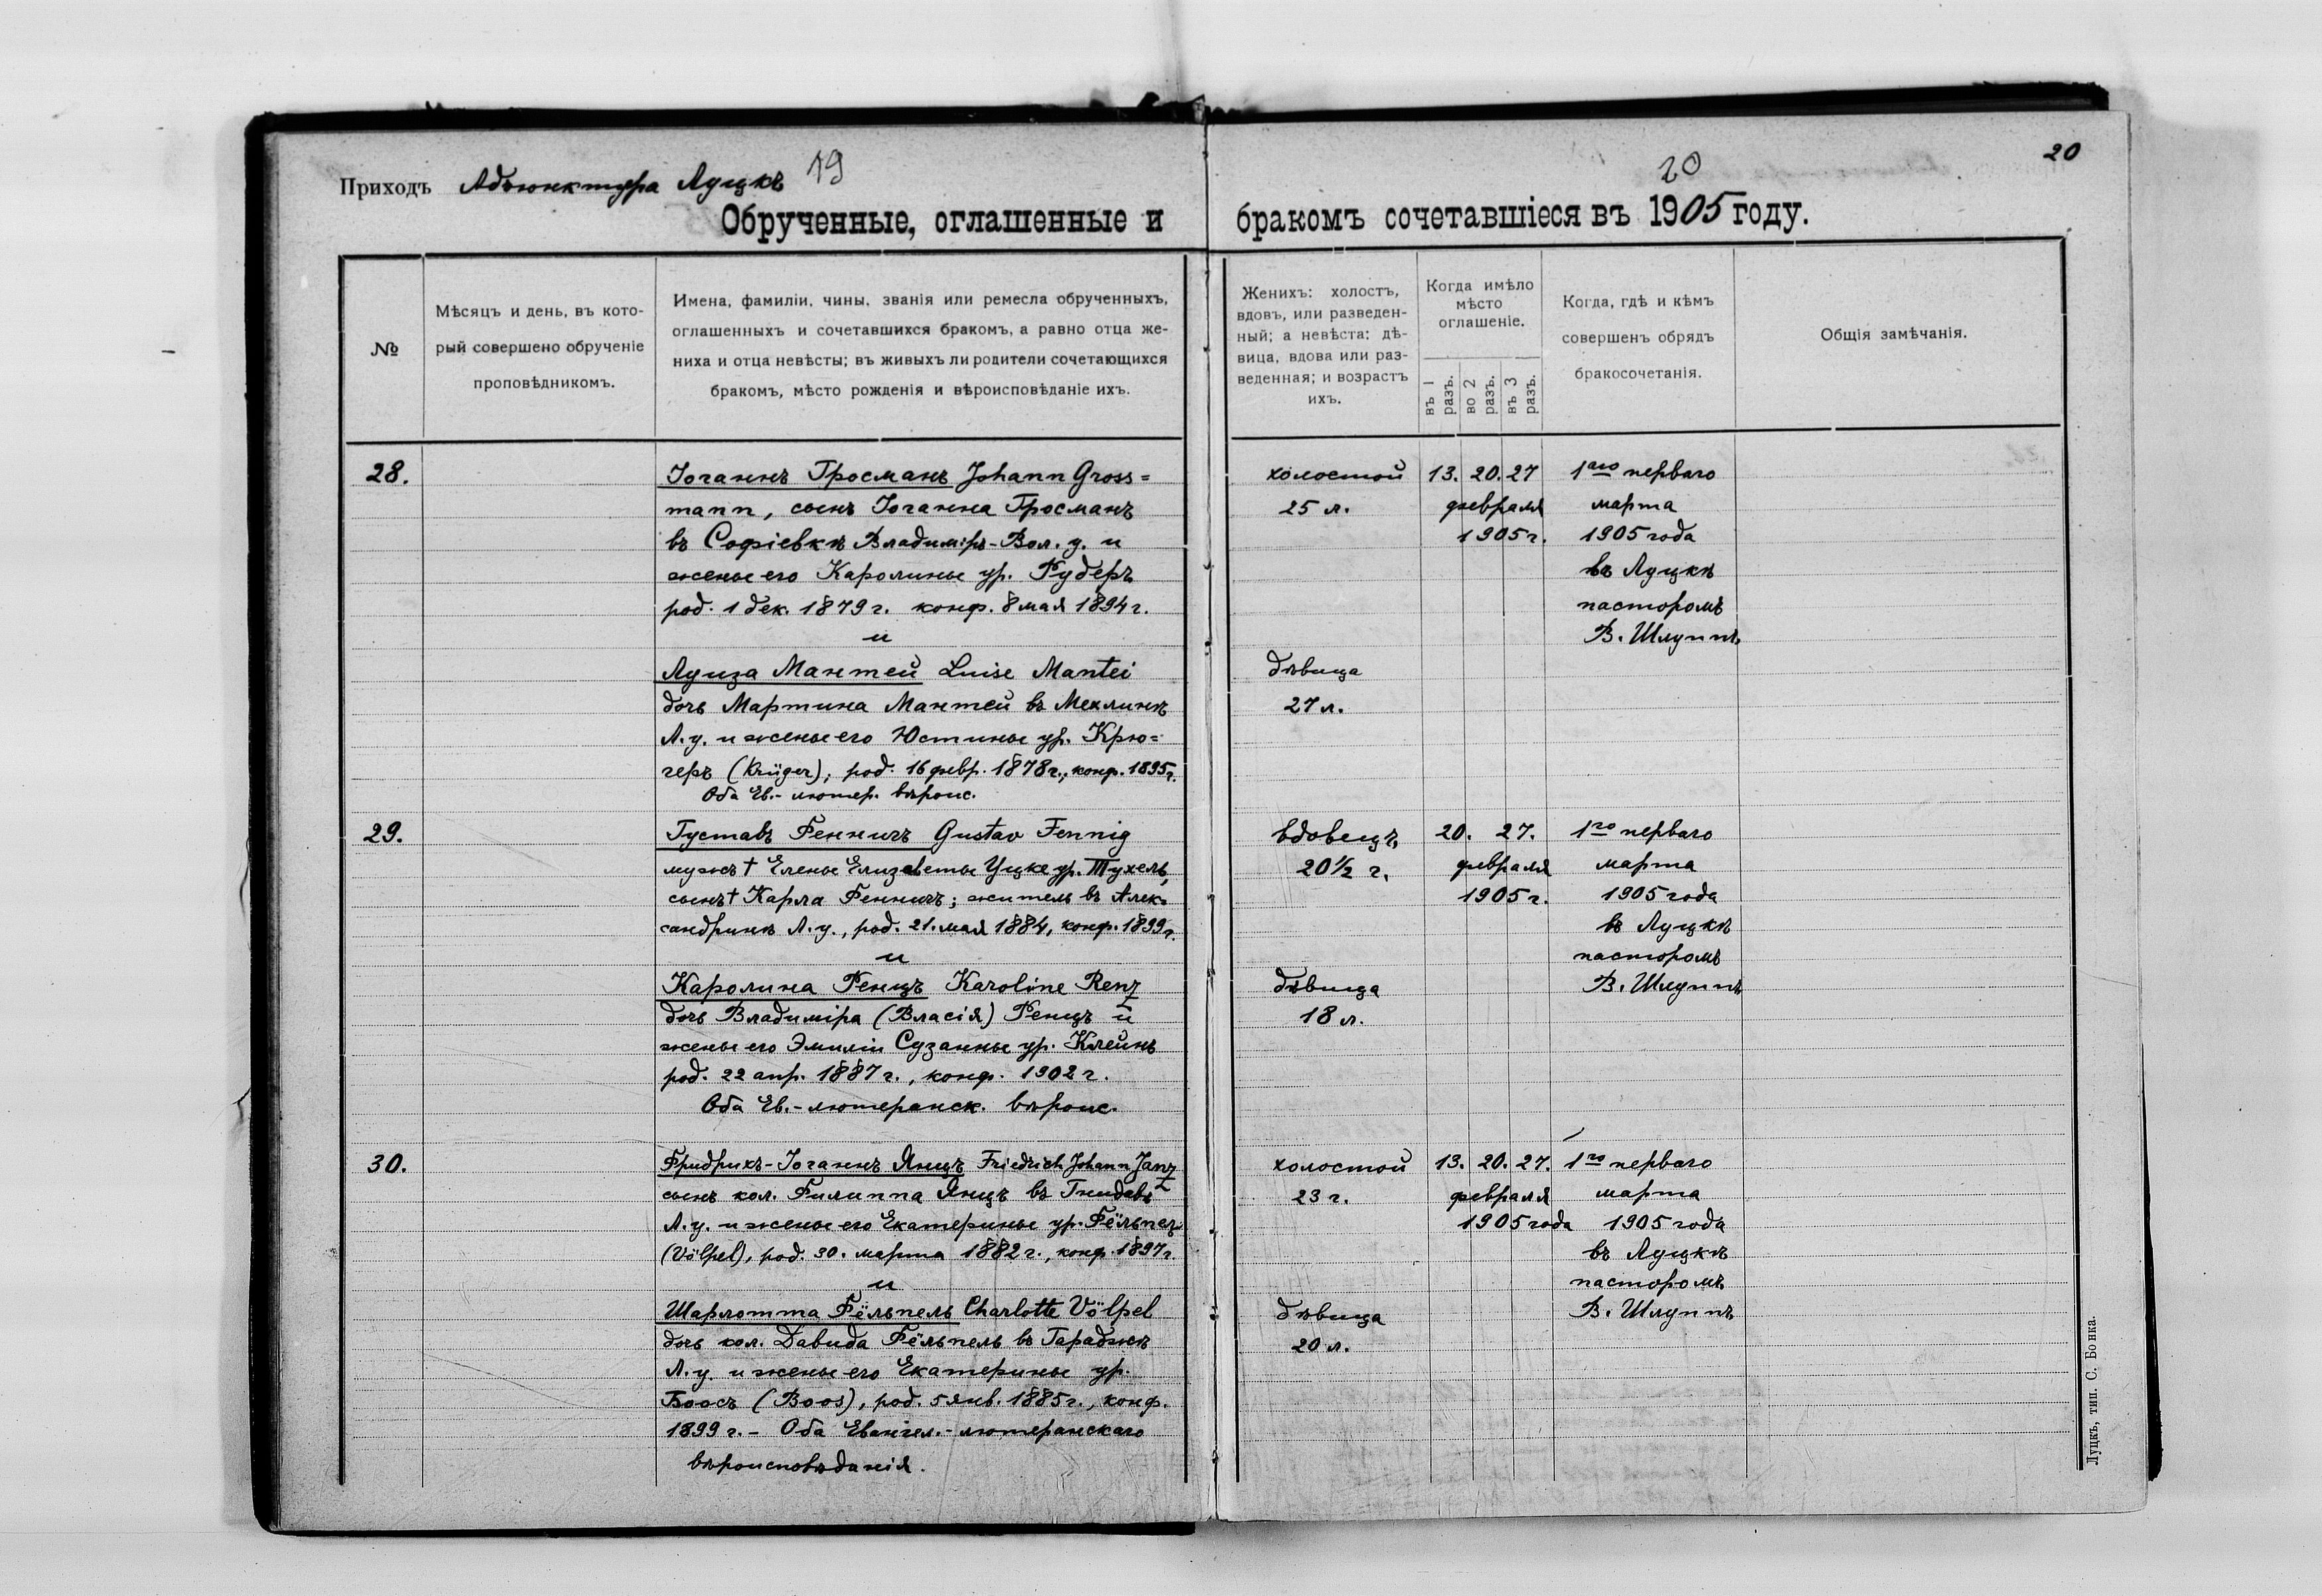 Приходъ Адъюнктура Луцкъ 19
Обрученные, оглашенные и
№
Мѣсяцъ и день, въ кото-
рый совершено обрученіе
проповѣдникомъ.
Имена, фамиліи, чины, званія или ремесла обрученныхъ,
оглашенныхъ и сочетавшихся бракомъ, а равно отца же-
ниха и отца невѣсты; въ живыхъ ли родители сочетающихся
бракомъ, мѣсто рожденія и вѣроисповѣданіе ихъ.
28.
Іоганнъ Гросманъ Johann Gross=
mann, сынъ Іоганна Гросманъ
въ Софіевкѣ Владимір-Вол. у. и
жены его Каролины ур. Рудеръ
род. 1 дек. 1879 г. конф. 8 мая 1894 г.
и
Луиза Мантей Luise Mantei
дочь Мартина Мантей въ Мехлинѣ
Л. у. и жены его Юстины ур. Крю=
геръ (Krüger), род. 16 февр. 1878 г., конф. 1895 г.
Оба Ев.-лютер. вѣроис.
29.
Густавъ Феннигъ Gustav Fennig
мужъ † Елены Елизаветы Уцке ур. Тухель,
сынъ † Карла Феннигъ; житель въ Алек=
сандринѣ Л. у., род. 21. мая 1884, конф. 1899 г.
и
Каролина Ренцъ Karoline Renz
дочь Владиміра (Власія) Ренцъ и
жены его Эмиліи Сузанны ур. Клейнъ
род. 22 апр. 1887 г., конф. 1902 г.
Оба Ев.-лютеранск. вѣроис.
30.
Фридрихъ-Іоганнъ Янцъ Friedrich Johann Janz
сынъ кол. Филиппа Янцъ въ Гнидавѣ
Л. у. и жены его Екатерины ур. Фёльпель
(Völpel), род. 30. марта 1882 г., конф. 1897 г.
и
Шарлотта Фёльпель Charlotte Völpel
дочь кол. Давида Фёльпель въ Гарадинѣ
Л. у. и жены его Екатерины ур.
Боосъ (Boos), род. 5 янв. 1885 г., конф.
1899 г. – Оба Евангел.-лютеранскаго
вѣроисповѣданія.
20
20
бракомъ сочетавшіеся въ 1905 году.
Женихъ: холостъ,
вдовъ, или разведен-
ный; а невѣста: дѣ-
вица, вдова или раз-
веденная; и возрастъ
ихъ.
Когда имѣло
мѣсто
оглашеніе.
въ 1 разъ.
во 2 разъ.
въ 3 разъ.
Когда, гдѣ и кѣмъ
совершенъ обрядъ
бракосочетанія.
Общія замѣчанія.
холостой 13. 20. 27 1аго перваго
25 л. февраля марта
1905 г. 1905 года
въ Луцкѣ
пасторомъ
В. Шлуппъ
дѣвица
27 л.
вдовецъ 20. 27. 1го перваго
20½ г. февраля марта
1905 г. 1905 года
въ Луцкѣ
пасторомъ
дѣвица В. Шлуппъ
18 л.
холостой 13. 20. 27. 1го перваго
23 г. февраля марта
1905 года 1905 года
въ Луцкѣ
пасторомъ
дѣвица В. Шлуппъ
20 л.
Луцкъ, тип. С. Бонка.